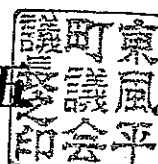 東風平
町議会
議長之印